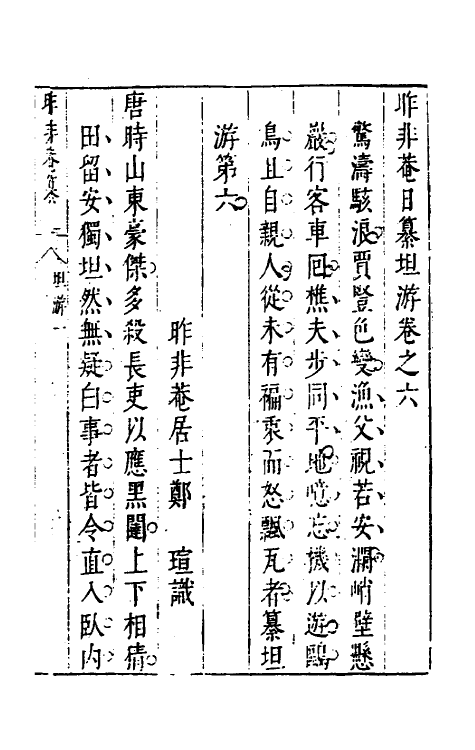 昨非菴日纂坦游卷之六
驚濤駭浪賈豎色變漁父視若安瀾峭壁懸
巖行客車囘樵夫步同平地噫忘機以遊鷗
鳥且自親人從未有褊衷而怒飄瓦者纂坦
游第六
昨非菴居士鄭瑄識
唐時山東豪傑多殺長吏以應黑闥上下相猜
田留安獨坦然無疑白事者皆令直入臥內
昨非菴纂 二 坦游 一